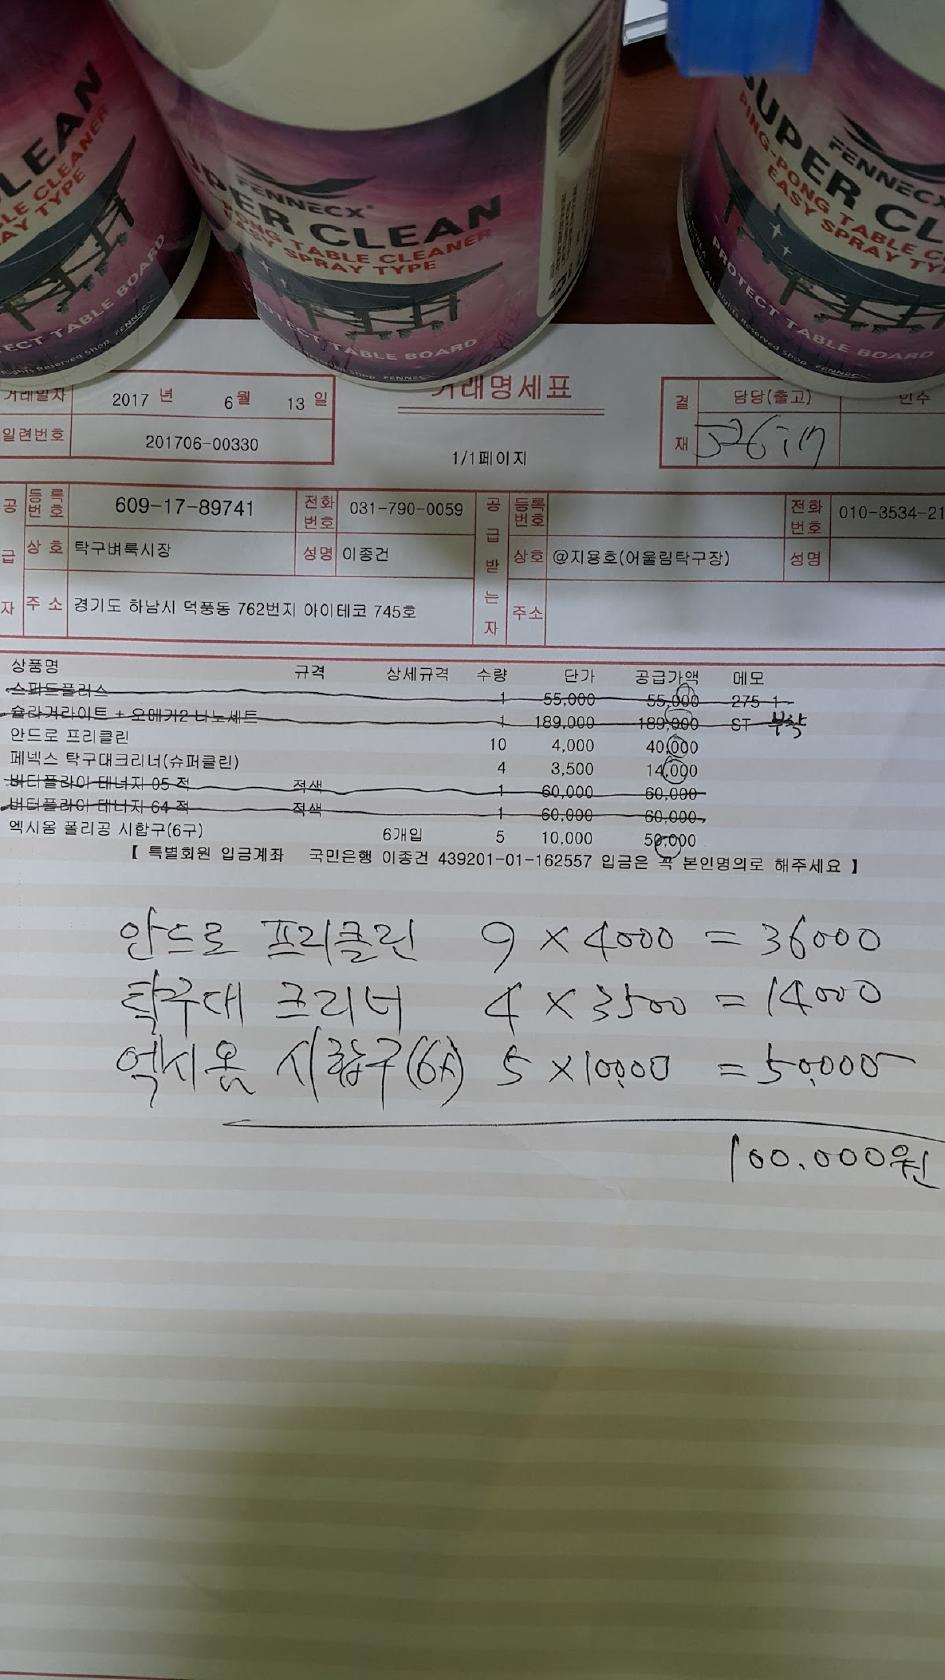 LEAN
LE CLEANER
AY TYPE
ECT TABLE BOARD
FENNECX
FENNECX®
PER CLEAN
PONG TABLE CLEANER
EASY SPRAY TYPE
PROTECT TABLE BOARD
FENNECX
SUPER CL
PING-PONG TABLE C
EASY SPRAY TY
PROTECT TABLE BOARD
거래일자 2017 년 6 월 13 일
일련번호 201706-00330
거래명세표
1/1페이지
결재 담당(출고) 인수
공급자 등록번호 609-17-89741 전화번호 031-790-0059
상호 탁구벼룩시장 성명 이종건
주소 경기도 하남시 덕풍동 762번지 아이테코 745호
공급받는자 등록번호 전화번호 010-3534-21
상호 @지용호(어울림탁구장) 성명
주소
상품명 규격 상세규격 수량 단가 공급가액 메모
스피드플러스 1 55,000 55,000 275 1
슐라거라이트 + 오메가2 나노세트 1 189,000 189,000 ST 부착
안드로 프리클린 10 4,000 40,000
페넥스 탁구대크리너(슈퍼클린) 4 3,500 14,000
버터플라이 테너지 05 적 적색 1 60,000 60,000
버터플라이 테너지 64 적 적색 1 60,000 60,000
엑시옴 폴리공 시합구(6구) 6개입 5 10,000 50,000
【 특별회원 입금계좌 국민은행 이종건 439201-01-162557 입금은 꼭 본인명의로 해주세요 】
안드로 프리클린 9 × 4000 = 36000
탁구대 크리너 4 × 3500 = 14000
엑시옴 시합구(6개) 5 × 10,000 = 50,000
100.000원